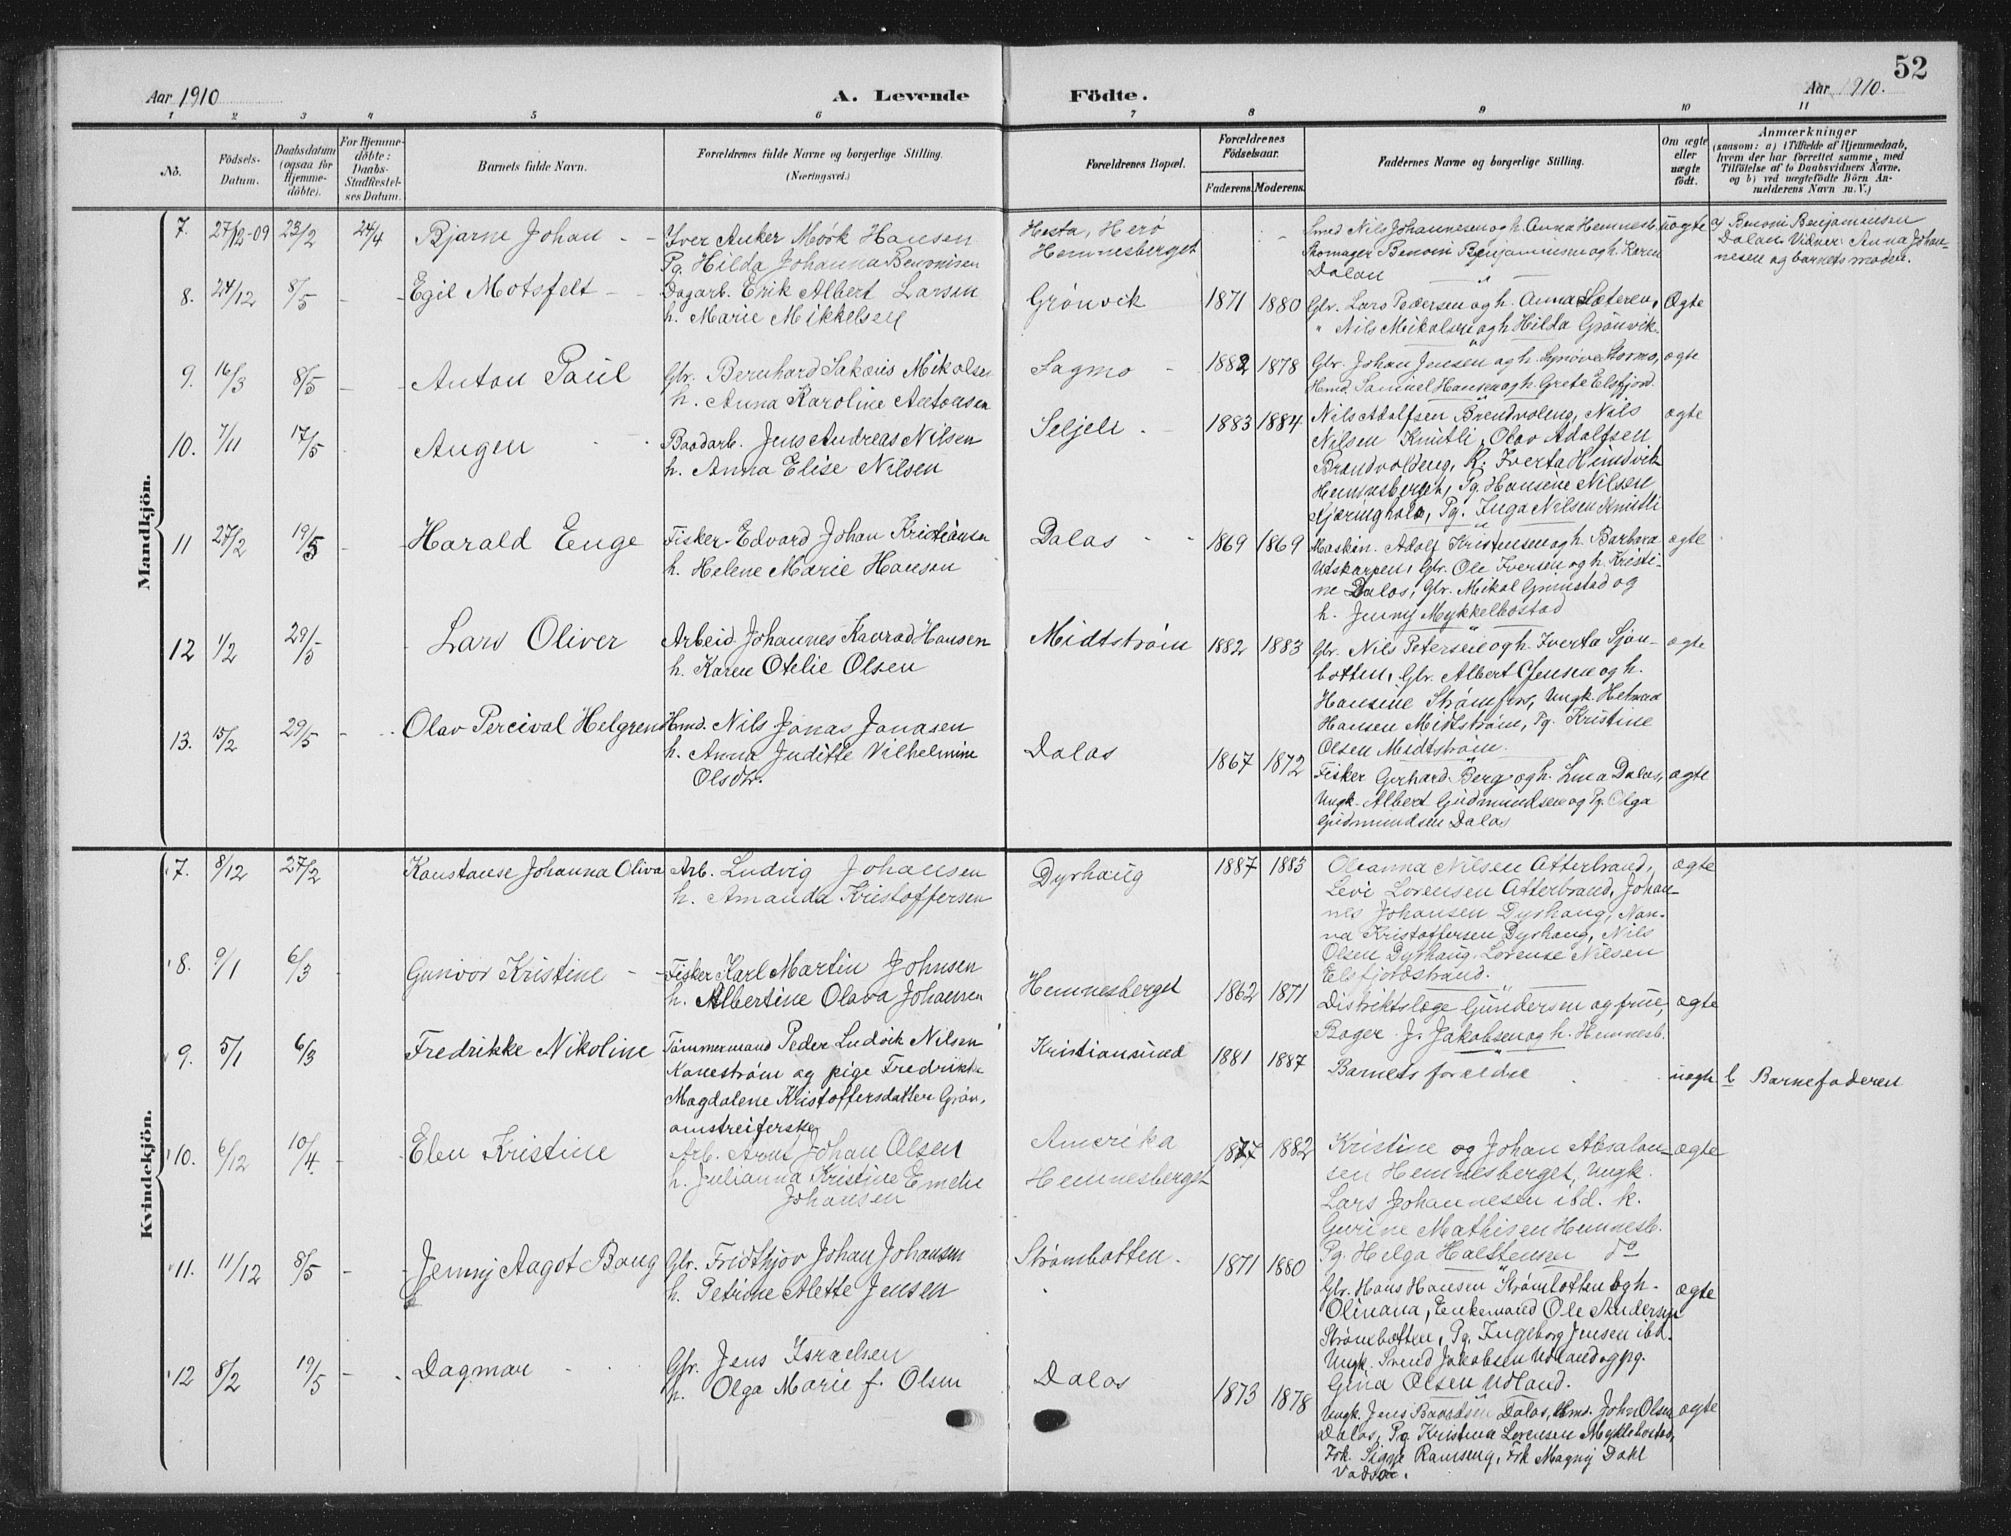 52
Aar 1910
A. Levende
Födte.
Aar 1910.
1 2 3 4 5 6 7 8 9 10 11
No.
Födsels-
Datum.
Daabsdatum
(ogsaa for
Hjemme-
döbte).
For Hjemme-
döbte:
Daabs-
Stadfæstel-
ses Datum.
Barnets fulde Navn.
Forældrenes fulde Navne og borgerlige Stilling.
(Næringsvei.)
Forældrenes Bopæl.
Forældrenes
Födselsaar.
Faderens. Moderens.
Faddernes Navne og borgerlige Stilling.
Om ægte
eller
uægte
födt.
Anmærkninger
(saasom: a) i Tilfælde af Hjemmedaab,
hvem der har forrettet samme, med
Tilföielse af to Daabsvidners Navne,
og b) ved uægtefödte Börn An-
melderens Navn m. V.)
Mandkjön.
7. 27/12-09 23/2 24/4 Bjarne Johan
Iver Anker Möök Hansen
Pg. Hilda Johanna Benonisen
Hesta, Herö
Hemnesberget
Smed Nils Johannesen og h. Anna Hemnesb.
Skomager Benoni Benjaminsen og h. Karen
Dalan
uægte
a/ Benoni Benjaminsen
Dalan Vidner: Anna Johan-
nesen og barnets moder.
8. 24/12 8/5 Egil Motsfelt
Dagarb. Erik Albert Larsen
h. Marie Mikkelsen
Grönvik
1871 1880
Gbr. Lars Pedersen og h. Anna Sæteren,
" Nils Mikalsen og h. Hilda Grönvik
Ægte
9. 16/3 8/5 Anton Paul
Gbr. Bernhard Sakæus Mikalsen
h. Anna Karoline Antonsen
Sagmo
1882 1878
Gbr. Johan Jensen og h. Synöve Stormo,
Hmd. Samuel Hansen og h. Grete Elsfjord.
ægte
10. 7/11 17/5 Augen
Baadarb. Jens Andreas Nilsen
h. Anna Elise Nilsen
Seljeli
1883 1884
Nils Adolfsen Brendvoleng, Nils
Nilsen Knutli, Olav Adolfsen
Brandvoleng, K. Iverta Hindvik
Hemnesberget, Pg. Hansine Nilsen
Kjæringhals, Pg. Inga Nilsen Knutli
ægte
11 27/2 19/5 Harald Enge
Fisker Edvard Johan Kristiansen
h. Helene Marie Hansen
Dalas
1869 1869
Maskin. Adolf Kristensen og h. Barbara
Utskarpen, Gbr. Ole Iversen og h. Kristi-
ne Dalos, Gbr. Mikal Grimstad og
h. Jenny Mykkelbostad
ægte
12 1/2 29/5 Lars Oliver
Arbeid. Johannes Konrad Hansen
h. Karen Otelie Olsen
Midtström
1882 1883
Gbr. Nils Petersen og h. Iverta Sjon-
botten, Gbr. Albert Jensen og h.
Hansine Strömfors, Ungk. Helmer
Hansen Midtström, Pg. Kristine
Olsen Midtström.
ægte
13. 15/2 29/5 Olav Percival Helgren
Hmd. Nils Jonas Jonasen
h. Anna Juditte Vilhelmine
Olsdtr.
Dalos
1867 1872
Fisker Gerhard Berg og h. Lina Dalos,
Ungk. Albert Gudmundsen og Pg. Olga
Gudmundsen Dalos
ægte
Kvindekjön.
7. 8/12 27/2 Konstanse Johanna Oliva
Arb. Ludvig Johansen
h. Amanda Kristoffersen
Dyrhaug
1887 1885
Oleanna Nilsen Atterbrand,
Levi Lorensen Atterbrand, Johan-
nes Johansen Dyrhaug, Nan-
na Kristoffersen Dyrhaug, Nils
Olsen Dyrhaug, Lorense Nilsen
Elsfjordstrand.
ægte
8. 9/1 6/3 Gunvor Kristine
Fisker Karl Martin Johnsen
h. Albertine Olava Johansen
Hemnesberget
1862 1871
Distriktslæge Gundersen og frue,
Bager J. Jakobsen og h. Hemnesb.
ægte
9. 5/1 6/3 Fredrikke Nikoline
Tömmermand Peder Ludvik Nilsen
Koneström og pige Fredrikke
Magdalene Kristoffersdatter Grön,
omstreiferske
Kristiansund
1881 1887
Barnets forældre
uægte
b Barnefaderen
10. 6/12 10/4 Elen Kristine
Arb. Arnt Johan Olsen
h. Julianna Kristine Emelie
Johansen
Amerika
Hemnesberget
1877 1882
Kristine og Johan Absalon-
sen Hemnesberget, Ungk.
Lars Johannesen ibd. k.
Gurine Mathisen Hemnesb.
Pg. Helga Halstensen do
ægte
11. 11/12 8/5 Jenny Aagot Bang
Gbr. Fridthjov Johan Johansen
h. Petrine Alette Jensen
Strömbotten.
1871 1880
Gbr. Hans Hansen Strömbotten og h.
Olinana, Enkemand Ole Andersen
Strömbotten, Pg. Ingeborg Jensen ibd.
Ungk. Svend Jakobsen Udland og pg.
Gina Olsen Udland.
ægte
12 8/2 19/5 Dagmar
Gbr. Jens Israelsen
h. Olga Marie f. Olsen
Dalos
1873 1878
Ungk. Jens Baardsen Dalos, Hmd. John Olsen
Dalos, Pg. Kristina Lorensen Myklebostad,
Frk. Signe Ramseng, Frk Magny Dahl
Vadsö.
ægte